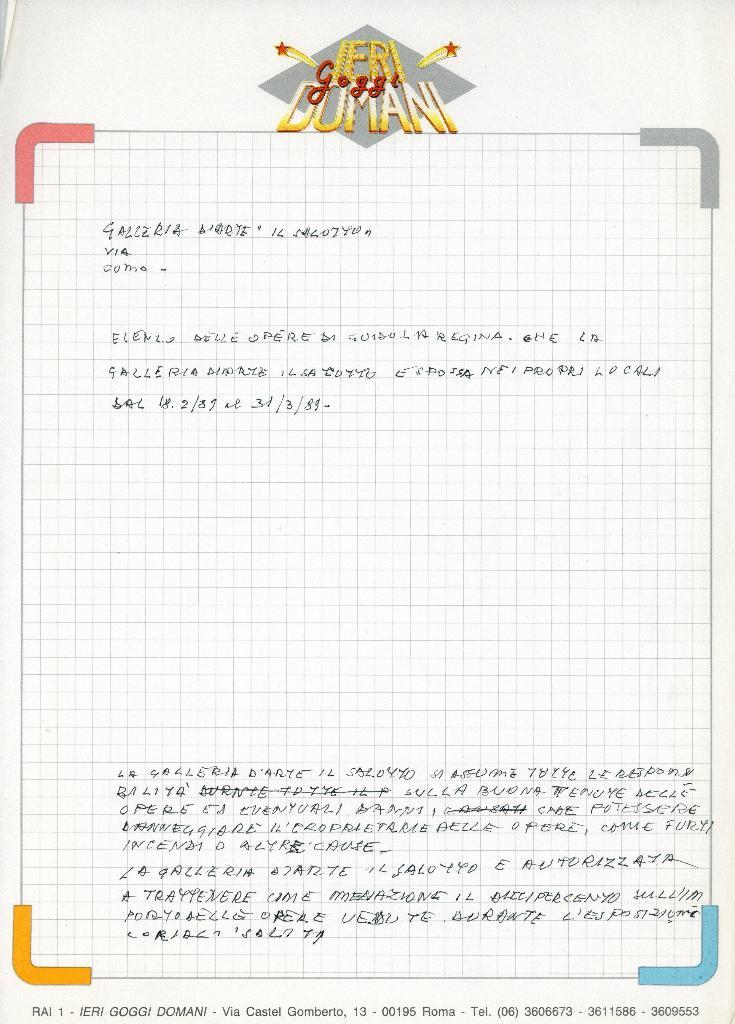 IERI
Goggi
DOMANI
GALLERIA D'ARTE "IL SALOTTO"
VIA
COMO -
ELENCO DELLE OPERE DI GUIDO LA REGINA. CHE LA
GALLERIA D'ARTE IL SALOTTO ESPOSSA NEI PROPRI LOCALI
DAL 18.2/89 al 31/3/89-
LA GALLERIA D'ARTE IL SALOTTO SI ASSUME TUTTE LE RESPONSA
BILITÀ SULLA BUONA TENUTE DELLE
OPERE ED EVENTUALI DANNI, CHE POTESSERE
DANNEGGIARE IL PROPRIETARIE DELLE OPERE, COME FURTI
INCENDI O ALTRE CAUSE -
LA GALLERIA D'ARTE IL SALOTTO E AUTORIZZATA
A TRATTENERE COME MEDIAZIONE IL DIECI PERCENTO SULL'IM
PORTO DELLE OPERE VENDUTE DURANTE L'ESPOSIZIONE
RAI 1 - IERI GOGGI DOMANI - Via Castel Gomberto, 13 - 00195 Roma - Tel. (06) 3606673 - 3611586 - 3609553